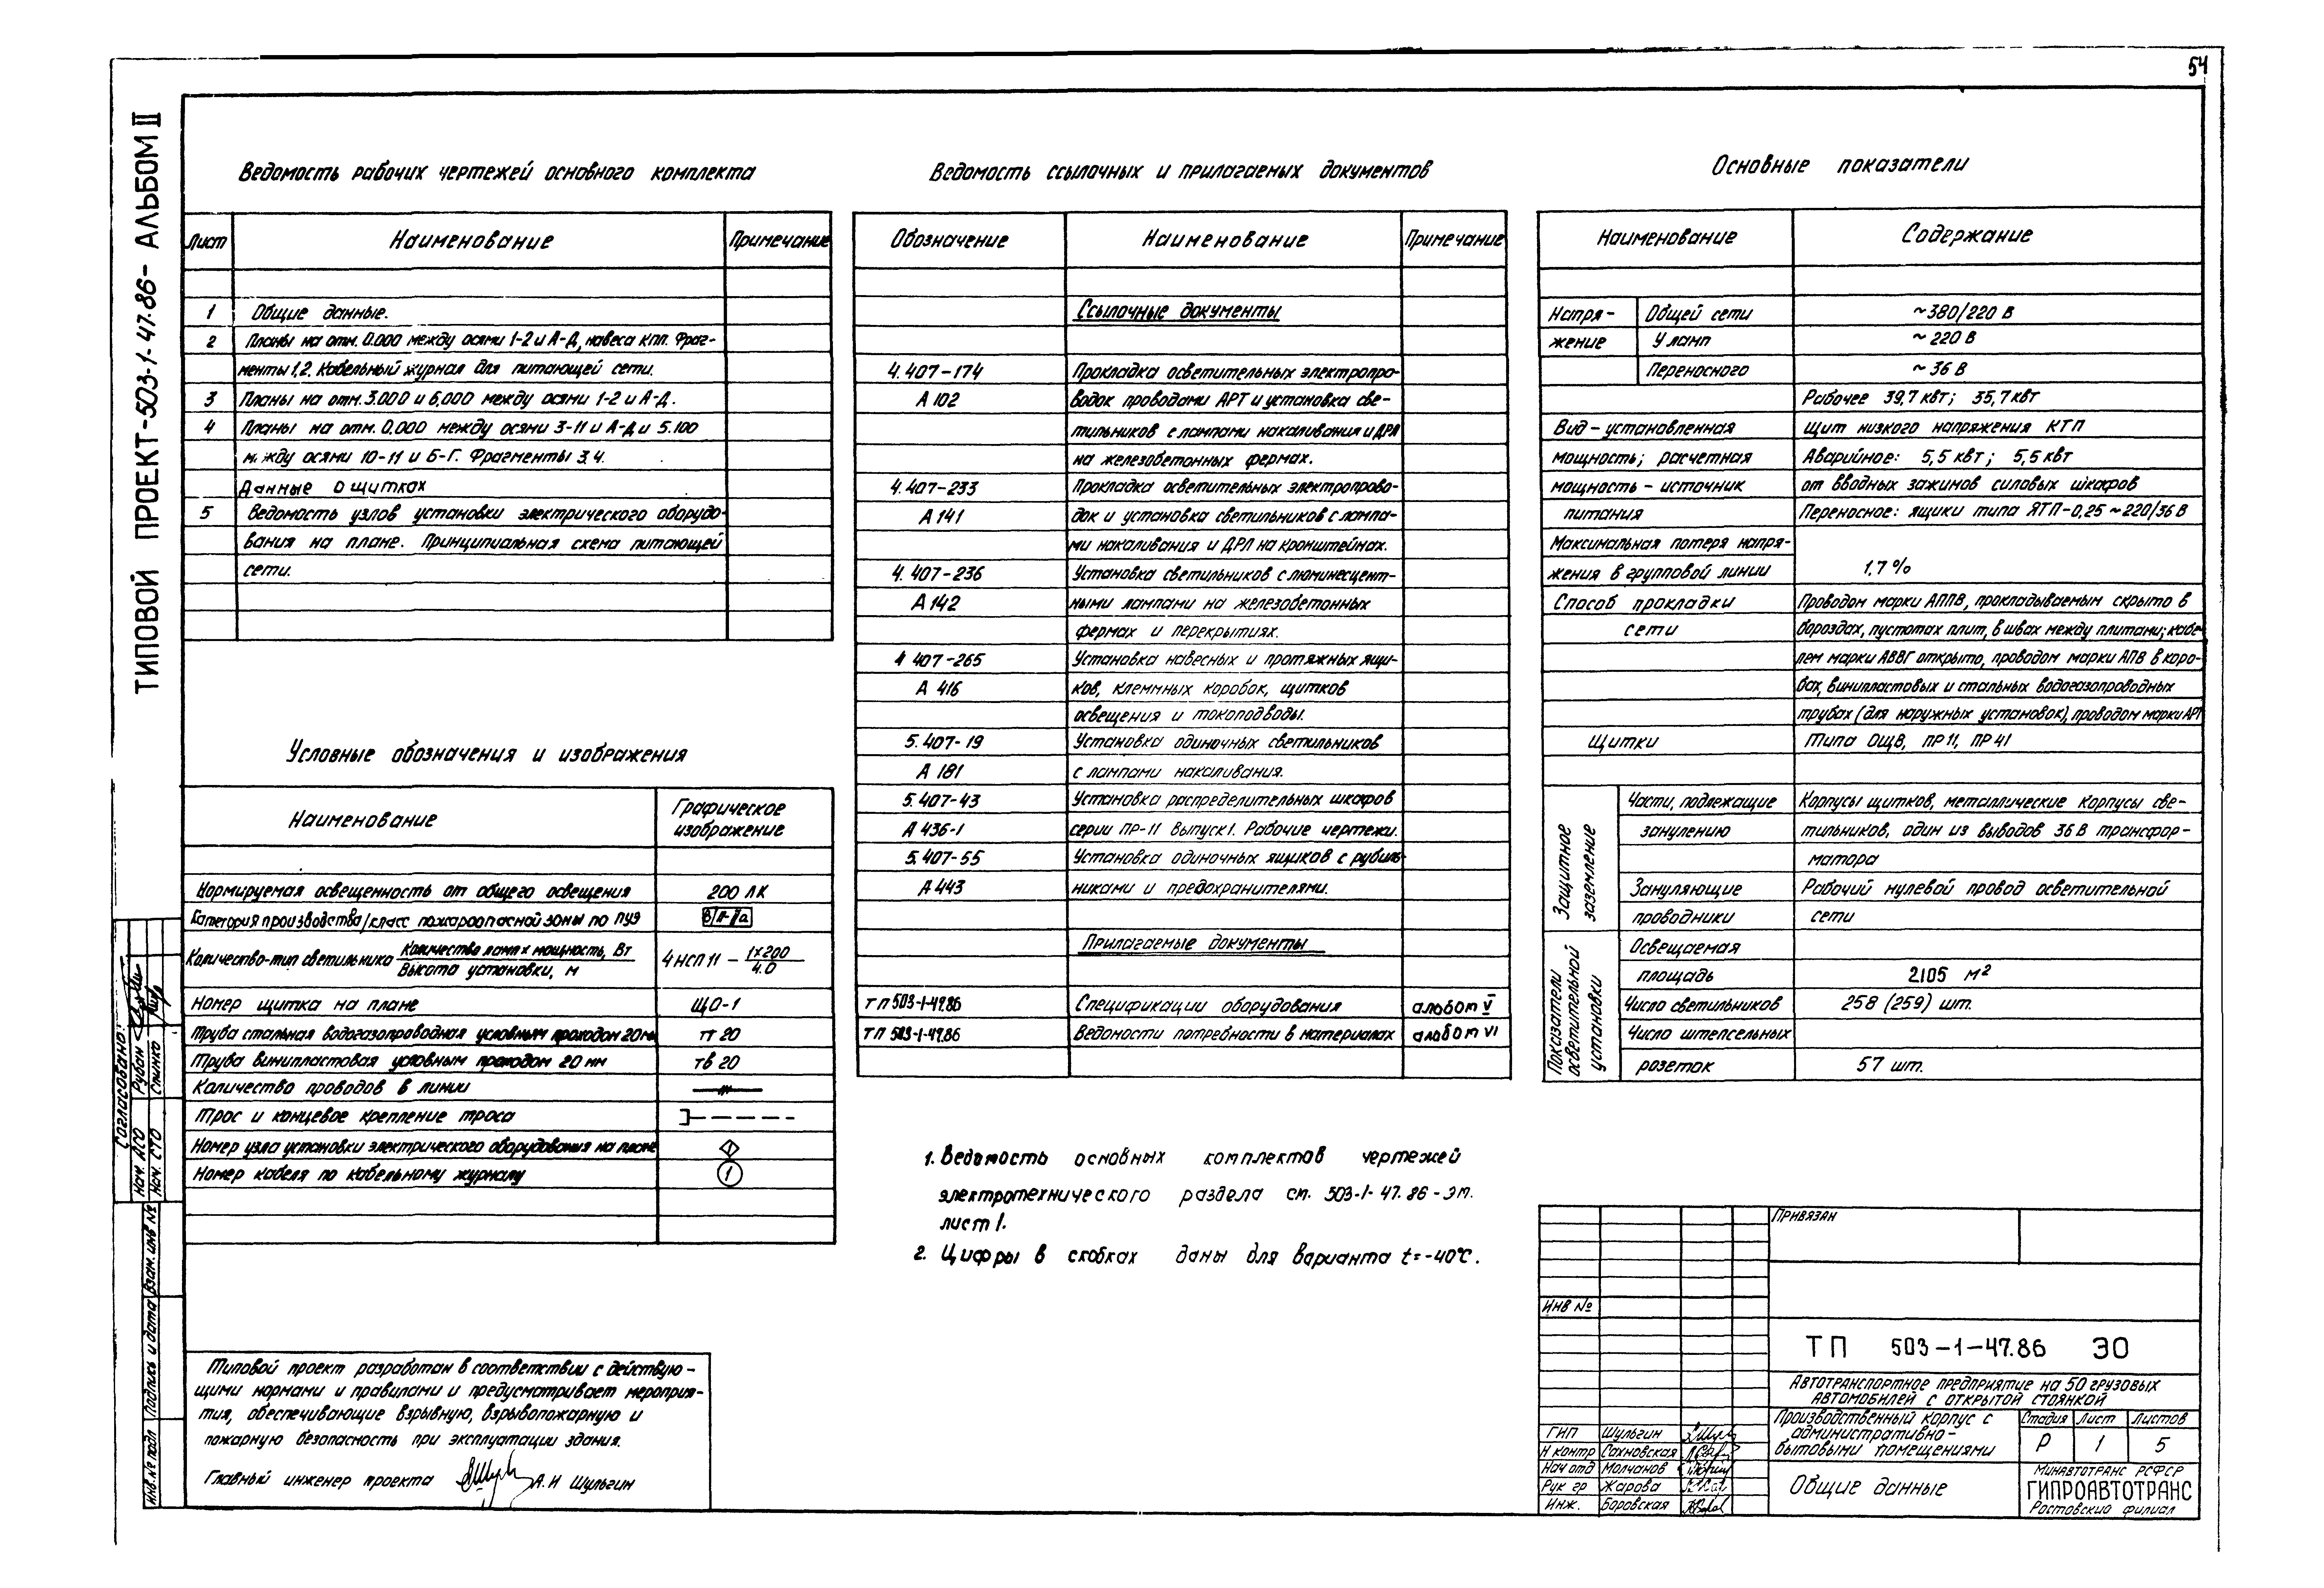 54
ТИПОВОЙ ПРОЕКТ-503-1-47.86- АЛЬБОМ II
Ведомость рабочих чертежей основного комплекта
Лист Наименование Примечание
1 Общие данные.
2 Планы на отм. 0.000 между осями 1-2 и А-Д, навеса КПП. Фраг-
менты 1,2. Кабельный журнал для питающей сети.
3 Планы на отм. 3.000 и 6,000 между осями 1-2 и А-Д.
4 Планы на отм. 0.000 между осями 3-11 и А-Д и 5.100
между осями 10-11 и Б-Г. Фрагменты 3,4.
Данные о щитках
5 Ведомость узлов установки электрического оборудо-
вания на плане. Принципиальная схема питающей
сети.
Условные обозначения и изображения
Наименование Графическое
изображение
Нормируемая освещенность от общего освещения 200 ЛК
Категория производства/класс пожароопасной зоны по ПУЭ В/П-IIа
Количество-тип светильника Количество ламп х мощность, Вт / Высота установки, м 4 НСП 11 – 1х200 / 4.0
Номер щитка на плане ЩО-1
Труба стальная водогазопроводная условным проходом 20 мм тт 20
Труба винипластовая условным проходом 20 мм тв 20
Количество проводов в линии
Трос и концевое крепление троса
Номер узла установки электрического оборудования на плане 1
Номер кабеля по кабельному журналу 1
Типовой проект разработан в соответствии с действую-
щими нормами и правилами и предусматривает мероприя-
тия, обеспечивающие взрывную, взрывопожарную и
пожарную безопасность при эксплуатации здания.
Главный инженер проекта А.И Шульгин
Ведомость ссылочных и прилагаемых документов
Обозначение Наименование Примечание
Ссылочные документы
4.407-174 Прокладка осветительных электропро-
А 102 водок проводами АРТ и установка све-
тильников с лампами накаливания и ДРЛ
на железобетонных фермах.
4.407-233 Прокладка осветительных электропрово-
А 141 док и установка светильников с лампа-
ми накаливания и ДРЛ на кронштейнах.
4.407-236 Установка светильников с люминесцент-
А 142 ными лампами на железобетонных
фермах и перекрытиях.
4 407-265 Установка навесных и протяжных ящи-
А 416 ков, клеммных коробок, щитков
освещения и токоподводы.
5.407-19 Установка одиночных светильников
А 181 с лампами накаливания.
5.407-43 Установка распределительных шкафов
А 436-1 серии ПР-11 Выпуск 1. Рабочие чертежи.
5.407-55 Установка одиночных ящиков с рубиль-
А 443 никами и предохранителями.
Прилагаемые документы
ТП 503-1-47.86 Спецификации оборудования альбом V
ТП 503-1-47.86 Ведомости потребности в материалах альбом VI
1. Ведомость основных комплектов чертежей
электротехнического раздела см. 503-1-47.86-ЭМ.
лист 1.
2. Цифры в скобках даны для варианта t=-40°C.
Основные показатели
Наименование Содержание
Напря- Общей сети ~380/220 В
жение У ламп ~220 В
Переносного ~36 В
Рабочее 39,7 кВт; 35,7 кВт
Вид-установленная щит низкого напряжения КТП
мощность; расчетная Аварийное: 5,5 кВт; 5,5 кВт
мощность-источник от вводных зажимов силовых шкафов
питания Переносное: ящики типа ЯТП-0,25 ~220/36 В
Максимальная потеря напря-
жения в групповой линии 1,7%
Способ прокладки Проводом марки АППВ, прокладываемым скрыто в
сети бороздах, пустотах плит, в швах между плитами; кабе-
лем марки АВВГ открыто, проводом марки АПВ в коро-
бах, винипластовых и стальных водогазопроводных
трубах (для наружных установок), проводом марки АРТ
Щитки Типа ОЩВ, ПР11, ПР41
Защитное заземление
Части, подлежащие Корпусы щитков, металлические корпусы све-
занулению тильников, один из выводов 36 В трансфор-
матора
Зануляющие Рабочий нулевой провод осветительной
проводники сети
Показатели осветительной установки
Освещаемая
площадь 2105 м²
Число светильников 258 (259) шт.
Число штепсельных
розеток 57 шт.
Привязан
Инв №
ТП 503-1-47.86 ЭО
Автотранспортное предприятие на 50 грузовых
автомобилей с открытой стоянкой
Производственный корпус с
административно-
бытовыми помещениями
Стадия Лист Листов
Р 1 5
ГИП Шульгин
Н контр Сахновская
Нач отд Молчанов
Рук гр Жарова
Инж. Боровская
Общие данные
Минавтотранс РСФСР
ГИПРОАВТОТРАНС
Ростовский филиал
Согласовано:
Нач. АСО Рубан
Нач. СТО
Взам. инв №
Подпись и дата
Инв. № подл